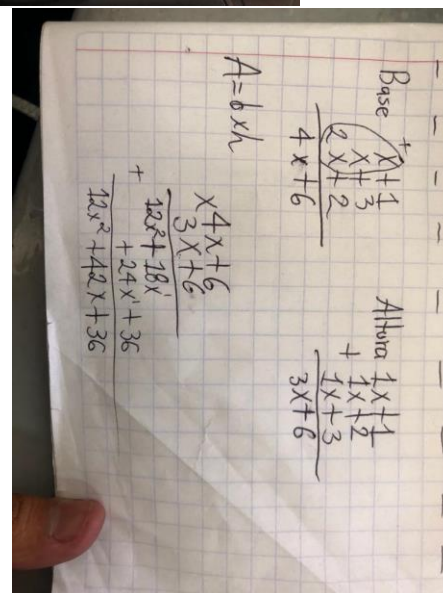 Base
x+1
+ x+3
2x+2
4x+6
Altura
1x+1
+ 1x+2
1x+3
3x+6
A=bxh
x 4x+6
3x+6
12x²+18x
+ +24x+36
12x²+42x+36